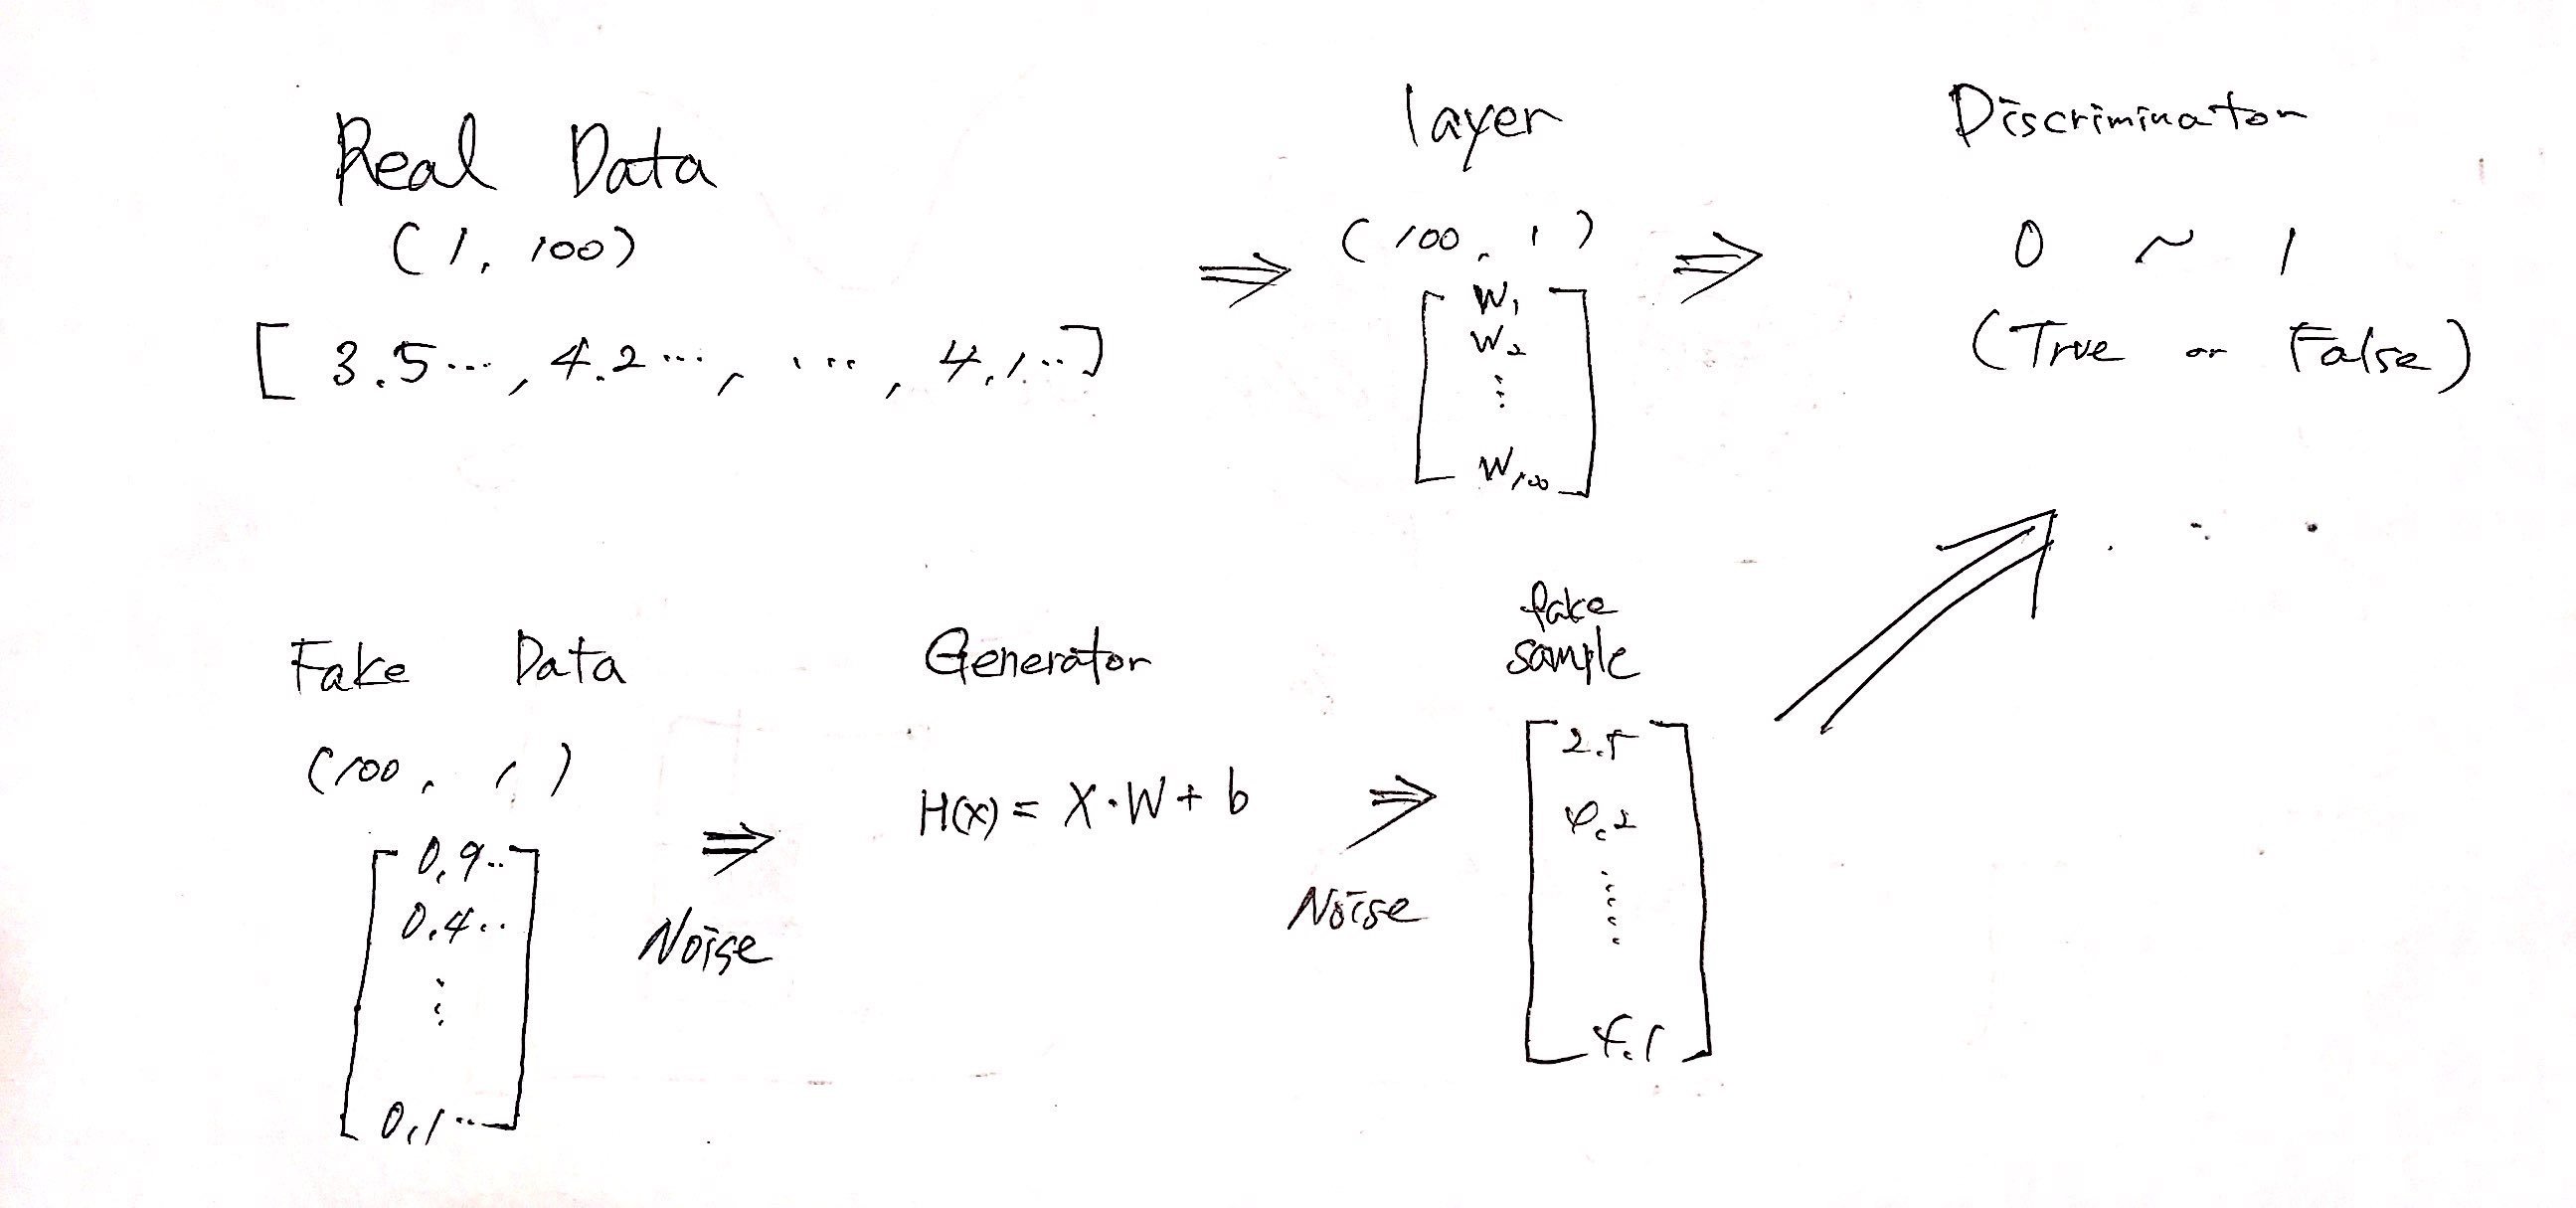 Real Data
(1, 100)
[ 3.5..., 4.2 ..., ..., 4.1...]
layer
(100, 1)
W1
W2
⋮
W100
Discriminator
0 ~ 1
(True or False)
Fake Data
(100, 1)
0.9..
0.4..
⋮
0.1...
Noise
Generator
H(x) = X·W + b
Noise
fake
sample
4.2
⋮
4.1